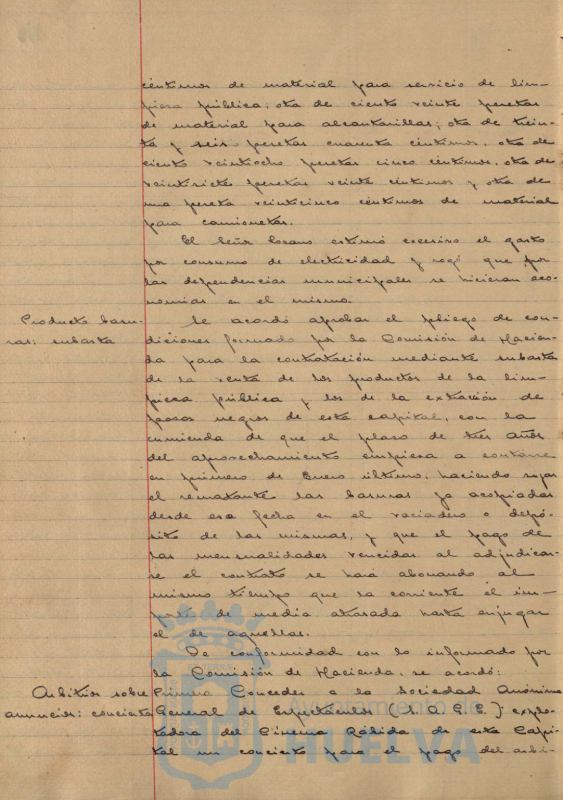 céntimos de material para servicio de lim-
pieza pública; otra de ciento veinte pesetas
de material para alcantarillas; otra de trein-
ta y seis pesetas cuarenta céntimos, otra de
ciento veintiocho pesetas cinco céntimos, otra de
veintisiete pesetas veinte céntimos y otra de
una peseta veinticinco céntimos de material
para camionetas.
El Señor Lozano estimó excesivo el gasto
por consumo de electricidad y rogó que por
las dependencias municipales se hicieran eco-
nomías en el mismo.
Producto basu-
ras: subasta
Se acordó aprobar el pliego de con-
diciones formado por la Comisión de Hacien-
da para la contratación mediante subasta
de la venta de los productos de la lim-
pieza pública y los de la extracción de
pozos negros de esta capital, con la
enmienda de que el plazo de tres años
del aprovechamiento empieza a contarse
en primero de Enero último, haciendo suyas
el rematante las basuras ya acopiadas
desde esa fecha en el vaciadero o depó-
sito de las mismas, y que el pago de
las mensualidades vencidas al adjudicar-
se el contrato se hará abonando al
mismo tiempo que la corriente el im-
porte de media atrasada hasta enjugar
el de aquellas.
De conformidad con lo informado por
la Comisión de Hacienda, se acordó:
Arbitrios sobre
anuncios: concierto
Primero Conceder a la Sociedad Anónima
General de Espectáculos (S.A.G.E.) explo-
tadora del Cinema Rábida de esta Capi-
tal un concierto para el pago del arbi-
Ayuntamiento de
HUELVA